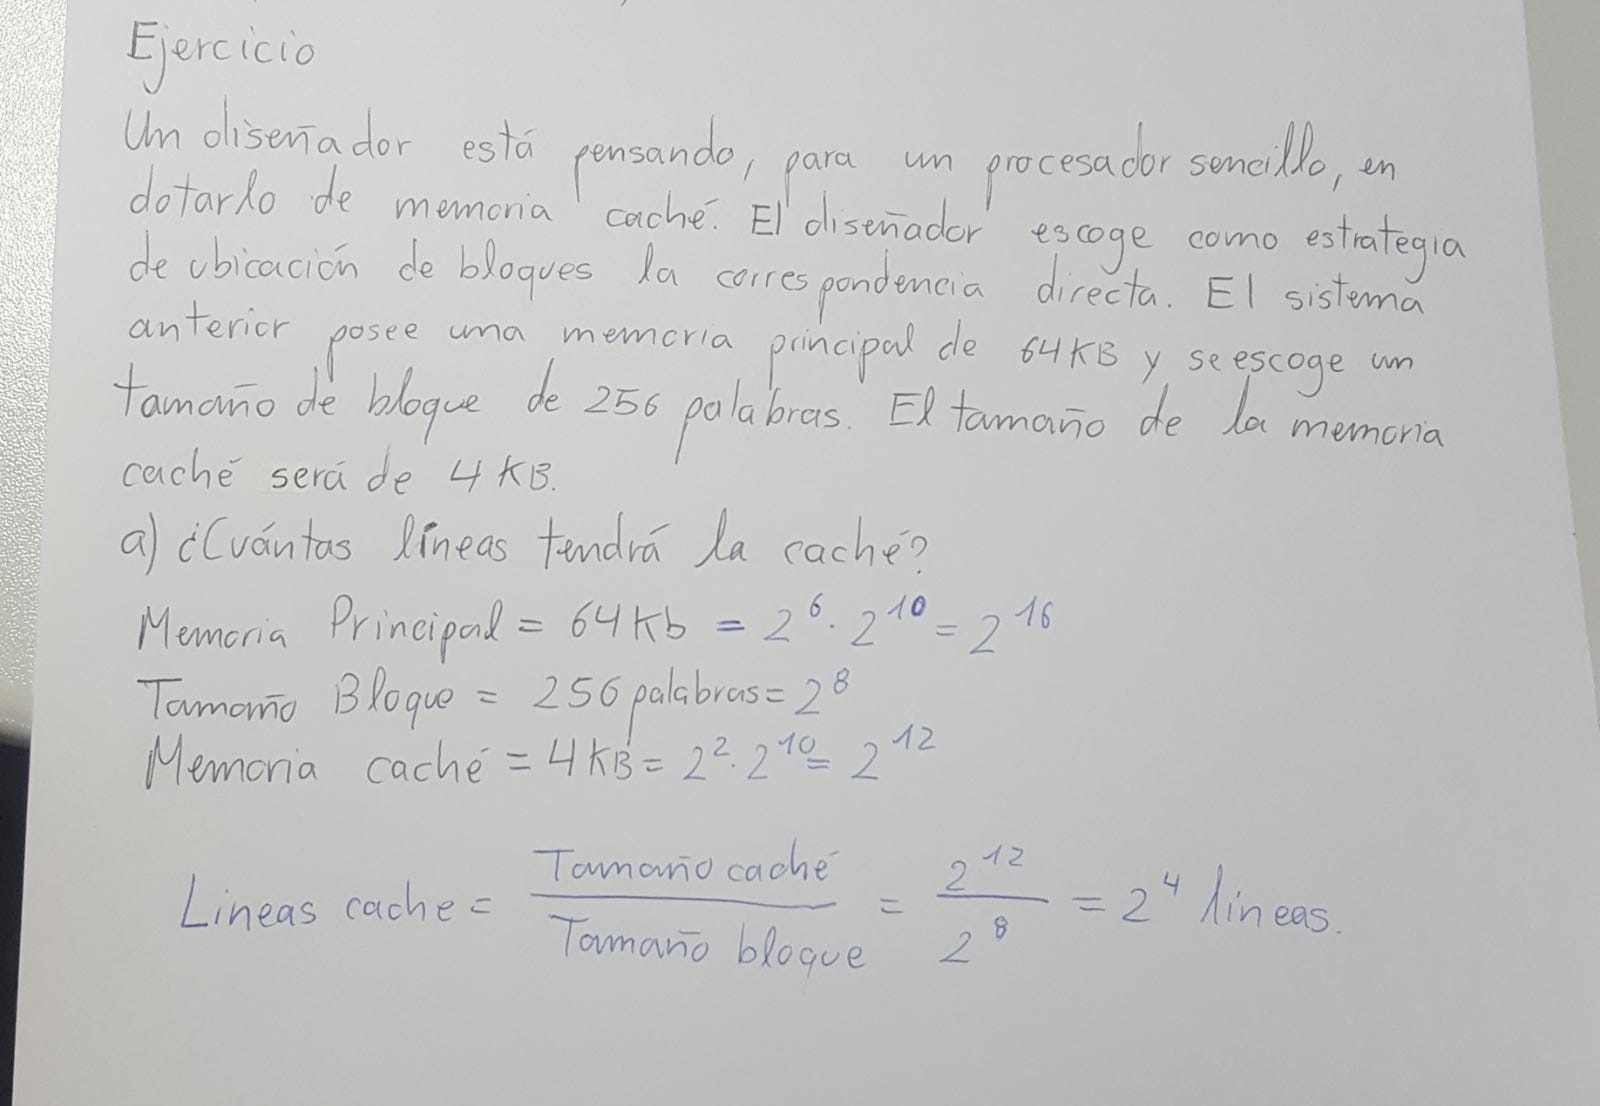 Ejercicio
Un diseñador está pensando, para un procesador sencillo, en
dotarlo de memoria caché. El diseñador escoge como estrategia
de ubicación de bloques la correspondencia directa. El sistema
anterior posee una memoria principal de 64KB y se escoge un
tamaño de bloque de 256 palabras. El tamaño de la memoria
caché será de 4 KB.
a) ¿Cuántas líneas tendrá la caché?
Memoria Principal = 64Kb = 2^6 · 2^10 = 2^16
Tamaño Bloque = 256 palabras = 2^8
Memoria caché = 4KB = 2^2 · 2^10 = 2^12
Lineas cache = Tamaño caché / Tamaño bloque = 2^12 / 2^8 = 2^4 líneas.